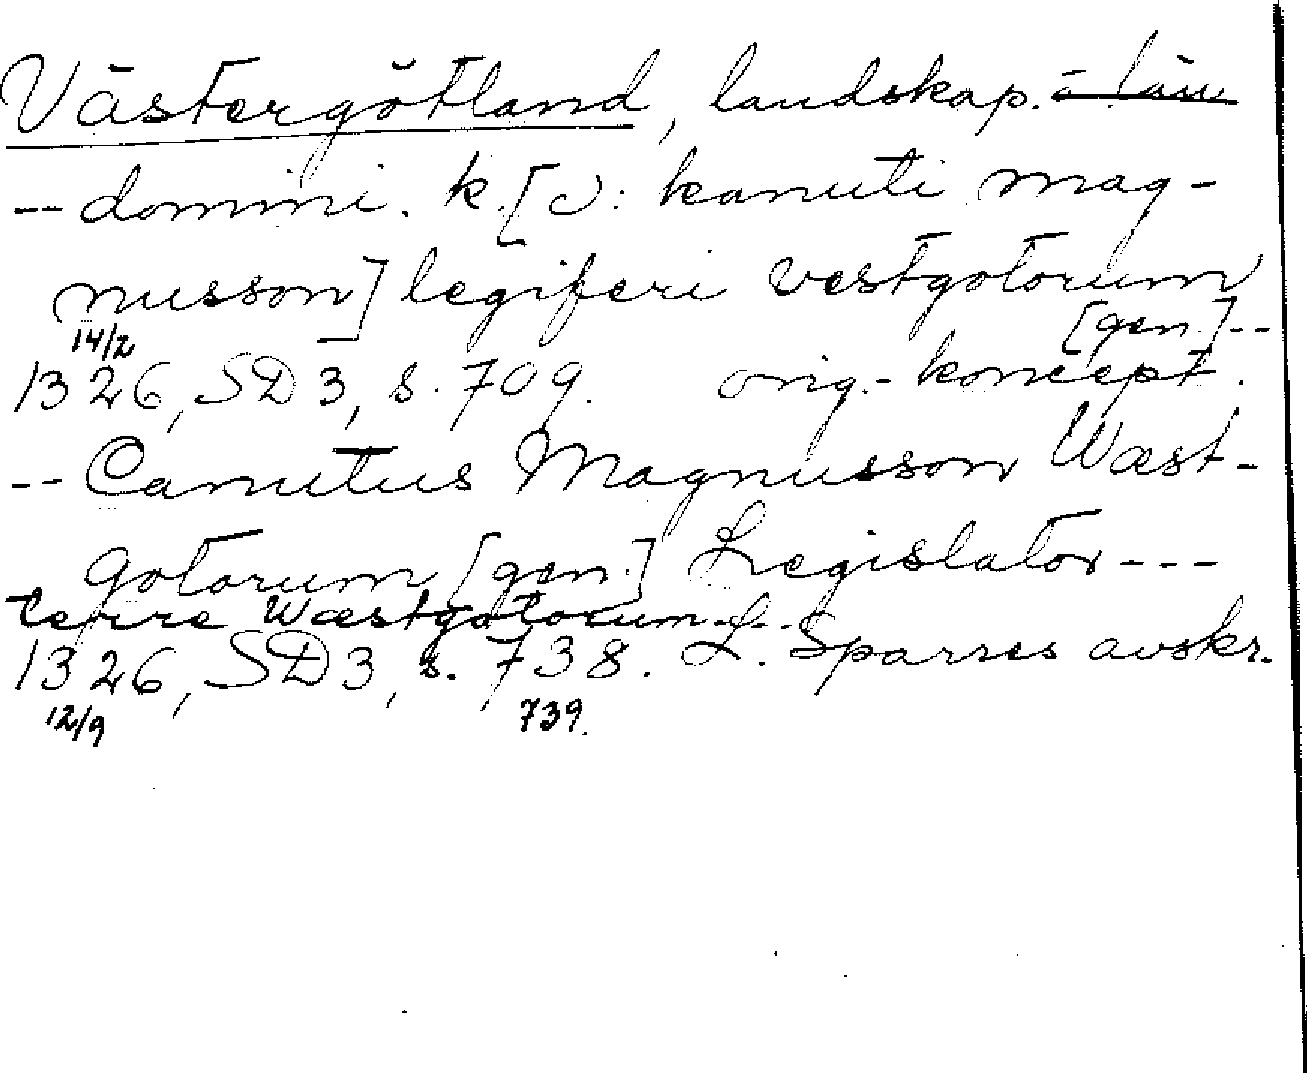 Västergötland, landskap. o. län
-- domini. k. [ɔ: kanuti mag-
nusson] legiferi vestgotorum
[gen.] --
14/2
1326, SD 3, s. 709. orig.-koncept.
-- Canutus Magnusson Wæst-
gotorum [gen.] Legislator ---
terre Wæstgotorum --
1326, SD 3, s. 738. L. Sparres avskr.
12/9 739.